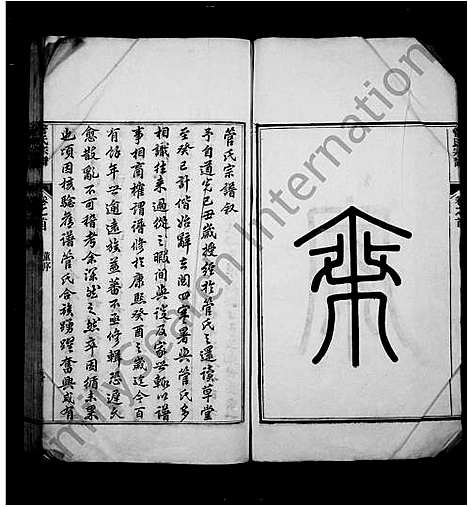 管氏宗譜叙
予自道光己丑歲授經於管氏之還讀草堂
至癸巳計偕始辭去閲四寒暑與管氏多
相識往来過從之暇間與談及家世輒以譜
事相商榷謂譜修於康熙癸酉之歲迄今百
有餘年世逾遠族益蕃不亟修輯恐漶氏
愈散亂不可稽考余深然之然卒因循未果
也項因核驗舊譜管氏合族踴躍奮興咸有
卷之首
董序